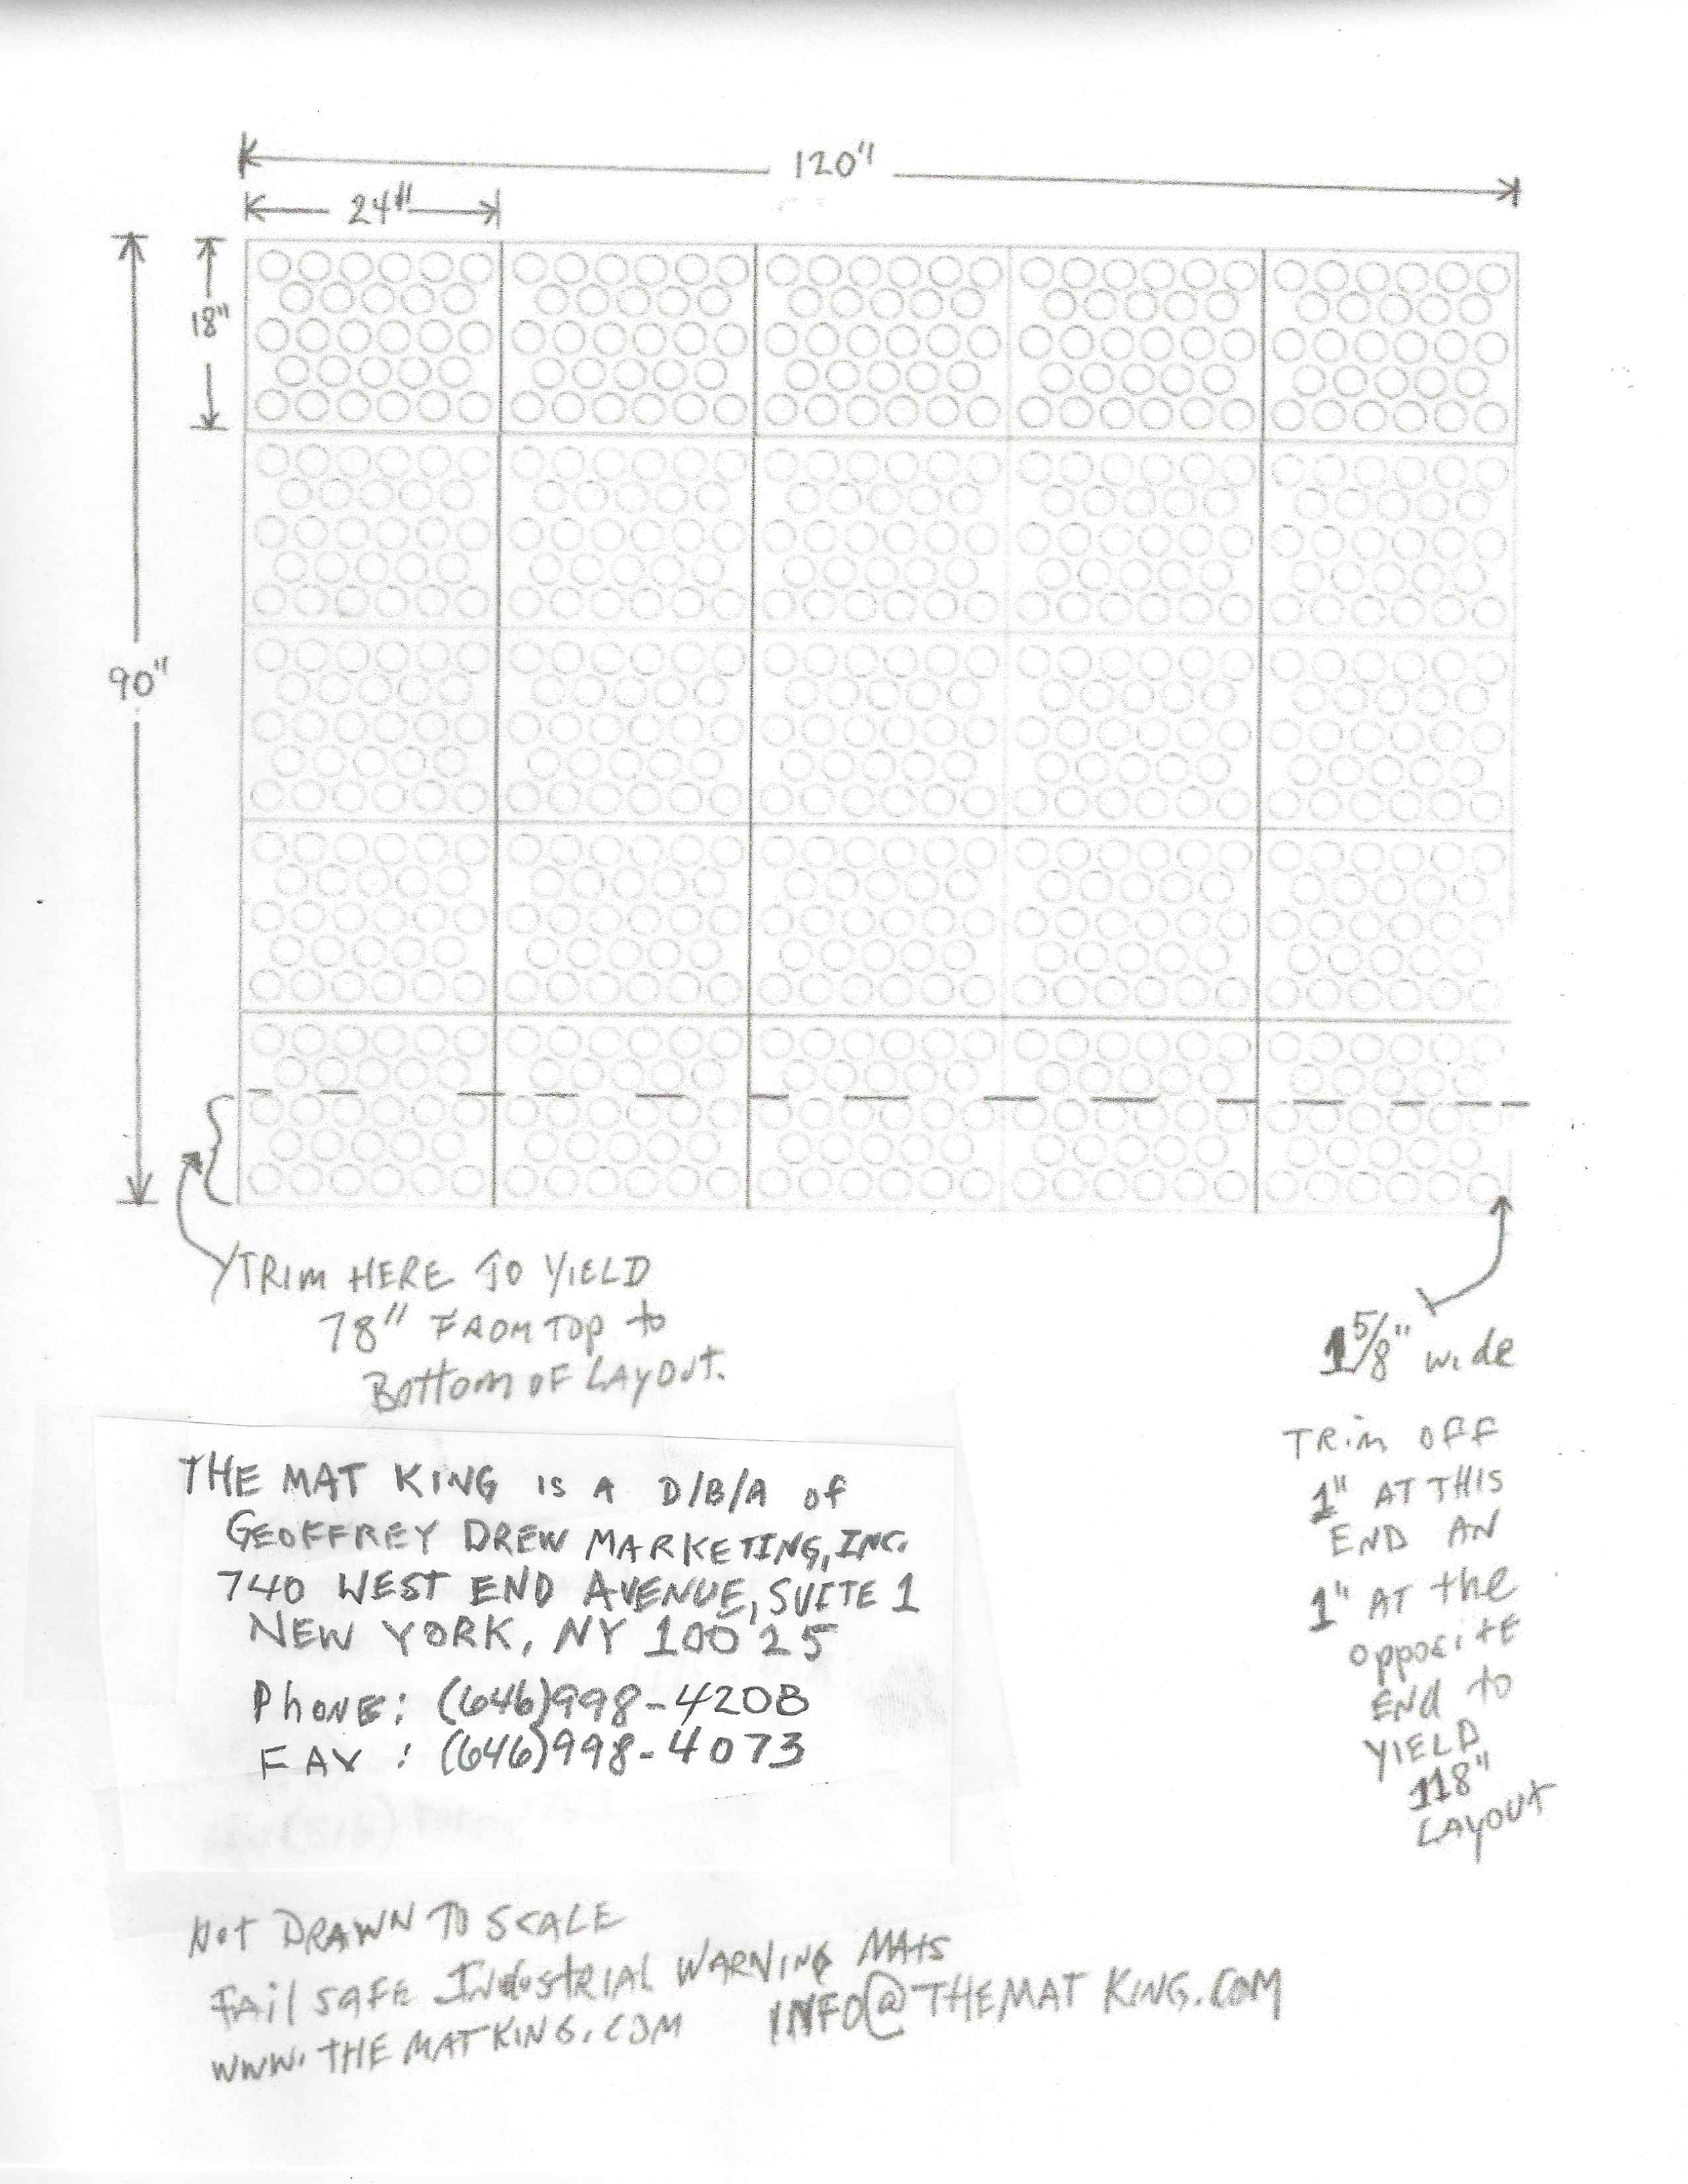 120"
24"
18"
90"
TRIM HERE TO YIELD
78" FROM TOP to
BOttOM OF LAYOUT.
1 5/8" wide
TRIM OFF
1" AT THIS
END AN
1" AT the
oppositE
ENd to
YIELD
118"
LAYOUT
THE MAT KING IS A D/B/A of
GEOFFREY DREW MARKETING, INC.
740 WEST END AVENUE, SUITE 1
NEW YORK, NY 10025
PhONE: (646)998-4208
FAX : (646)998-4073
NOT DRAWN TO SCALE
FAil SAFE INdustRIAL WARNING MAtS
WWW.THEMATKING.COM INFO@THEMATKING.COM